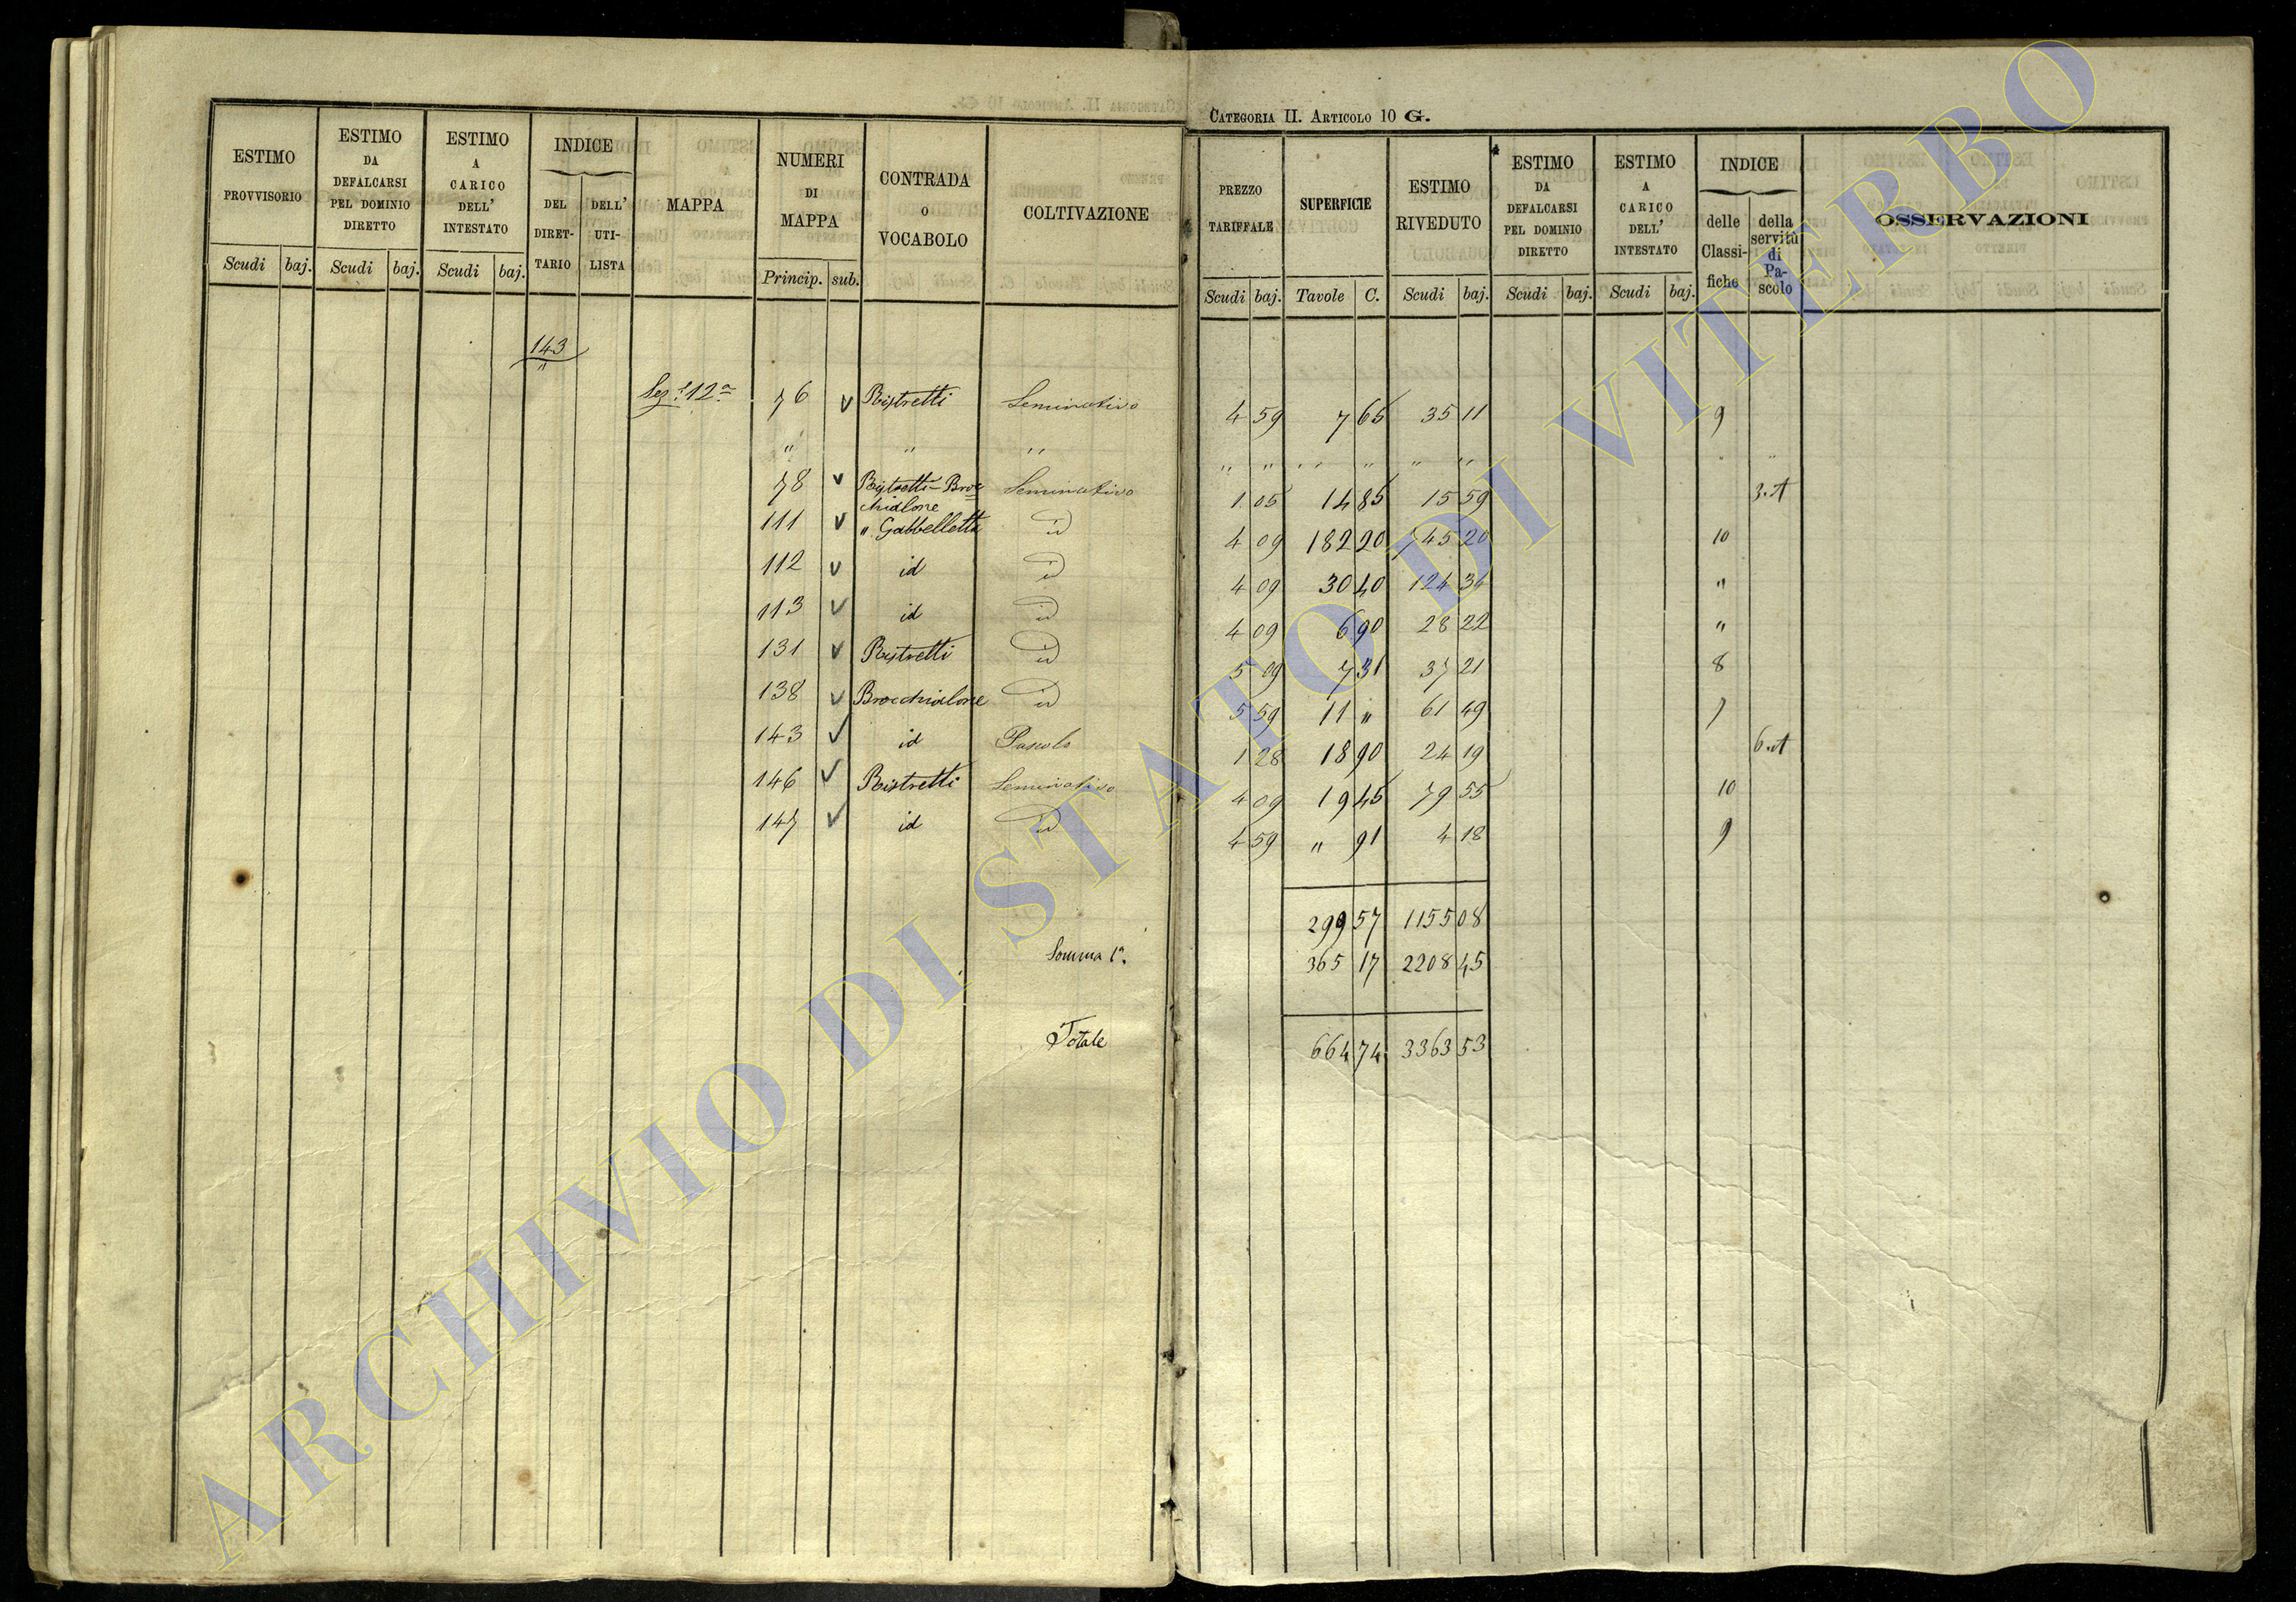 CATEGORIA II. ARTICOLO 10 G.
ESTIMO PROVVISORIO
Scudi baj.
ESTIMO DA DEFALCARSI PEL DOMINIO DIRETTO
Scudi baj.
ESTIMO A CARICO DELL' INTESTATO
Scudi baj.
INDICE
DEL DIRET-TARIO
DELL' UTI-LISTA
MAPPA
NUMERI DI MAPPA
Princip. sub.
CONTRADA O VOCABOLO
COLTIVAZIONE
PREZZO TARIFFALE
Scudi baj.
SUPERFICIE
Tavole C.
ESTIMO RIVEDUTO
Scudi baj.
ESTIMO DA DEFALCARSI PEL DOMINIO DIRETTO
Scudi baj.
ESTIMO A CARICO DELL' INTESTATO
Scudi baj.
INDICE
delle Classi-fiche
della servitù di Pa-scolo
OSSERVAZIONI
143
"
Sez.e 12a 76 v Ristretti Seminativo 4 59 7 65 35 11 9
" " " " " " " " "
78 v Ristretti-Broc Seminativo 1 05 14 85 15 59 3.A
chialone
111 v " Gabbelletta id 4 09 182 20 745 20 10
112 v id id 4 09 30 40 124 34 "
113 v id id 4 09 6 90 28 22 "
131 v Ristretti id 5 09 7 31 37 21 8
138 v Brocchialone id 5 59 11 " 61 49 7
143 v id Pascolo 1 28 18 90 24 19 6.A
146 v Ristretti Seminativo 4 09 19 45 79 55 10
147 v id id 4 59 " 91 4 18 9
299 57 1155 08
Somma 1a. 365 17 2208 45
Totale 664 74 3363 53
ARCHIVIO DI STATO DI VITERBO